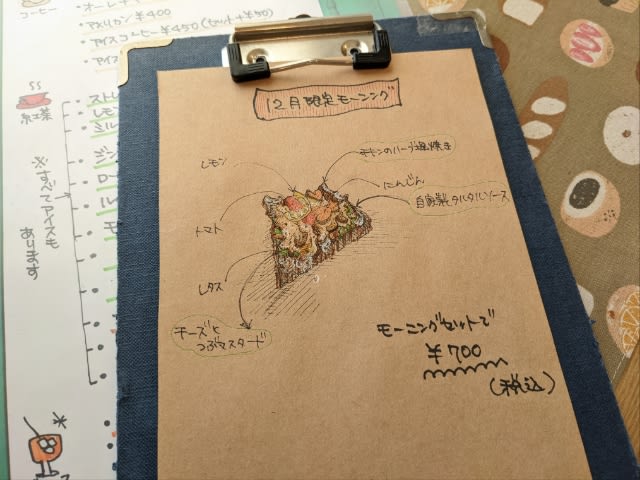 コーヒー
・アメリカン ¥400
アイスコーヒー ¥450 (セット+¥50)
紅茶
※すべてアイスも
あります
12月限定モーニング
レモン
チキンのハーブ塩焼き
にんじん
自家製タルタルソース
トマト
レタス
チーズと
つぶマスタード
モーニングセットで
¥700
(税込)